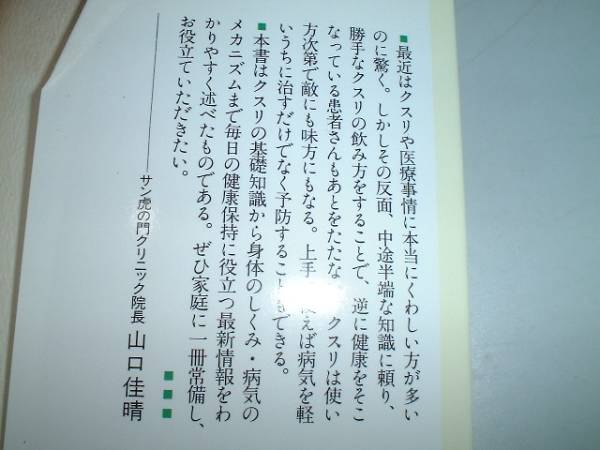 ■最近はクスリや医療事情に本当にくわしい方が多い
のに驚く。しかしその反面、中途半端な知識に頼り、
勝手なクスリの飲み方をすることで、逆に健康をそこ
なっている患者さんもあとをたたな クスリは使い
方次第で敵にも味方にもなる。上手 えば病気を軽
いうちに治すだけでなく予防すること できる。
■本書はクスリの基礎知識から身体のしくみ・病気の
メカニズムまで毎日の健康保持に役立つ最新情報をわ
かりやすく述べたものである。ぜひ家庭に一冊常備し、
お役立ていただきたい。
――サン虎の門クリニック院長 山口佳晴
■■■